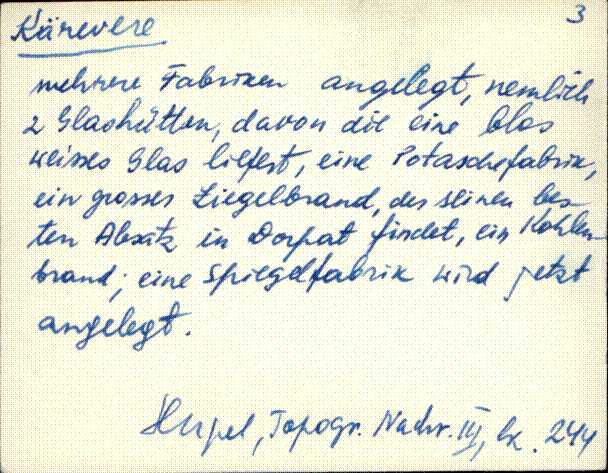 3
Kärevere
mehrere Fabriken angelegt, nemlich
2 Glashütten, davon die eine blos
weisses Glas liefert, eine Potaschefabrik,
ein grosses Ziegelbrand, der seinen bes-
ten Absatz in Dorpat findet, ein Kohlen-
brand; eine Spiegelfabrik wird jetzt
angelegt.
Hupel, Topogr. Nachr. III, lk. 244